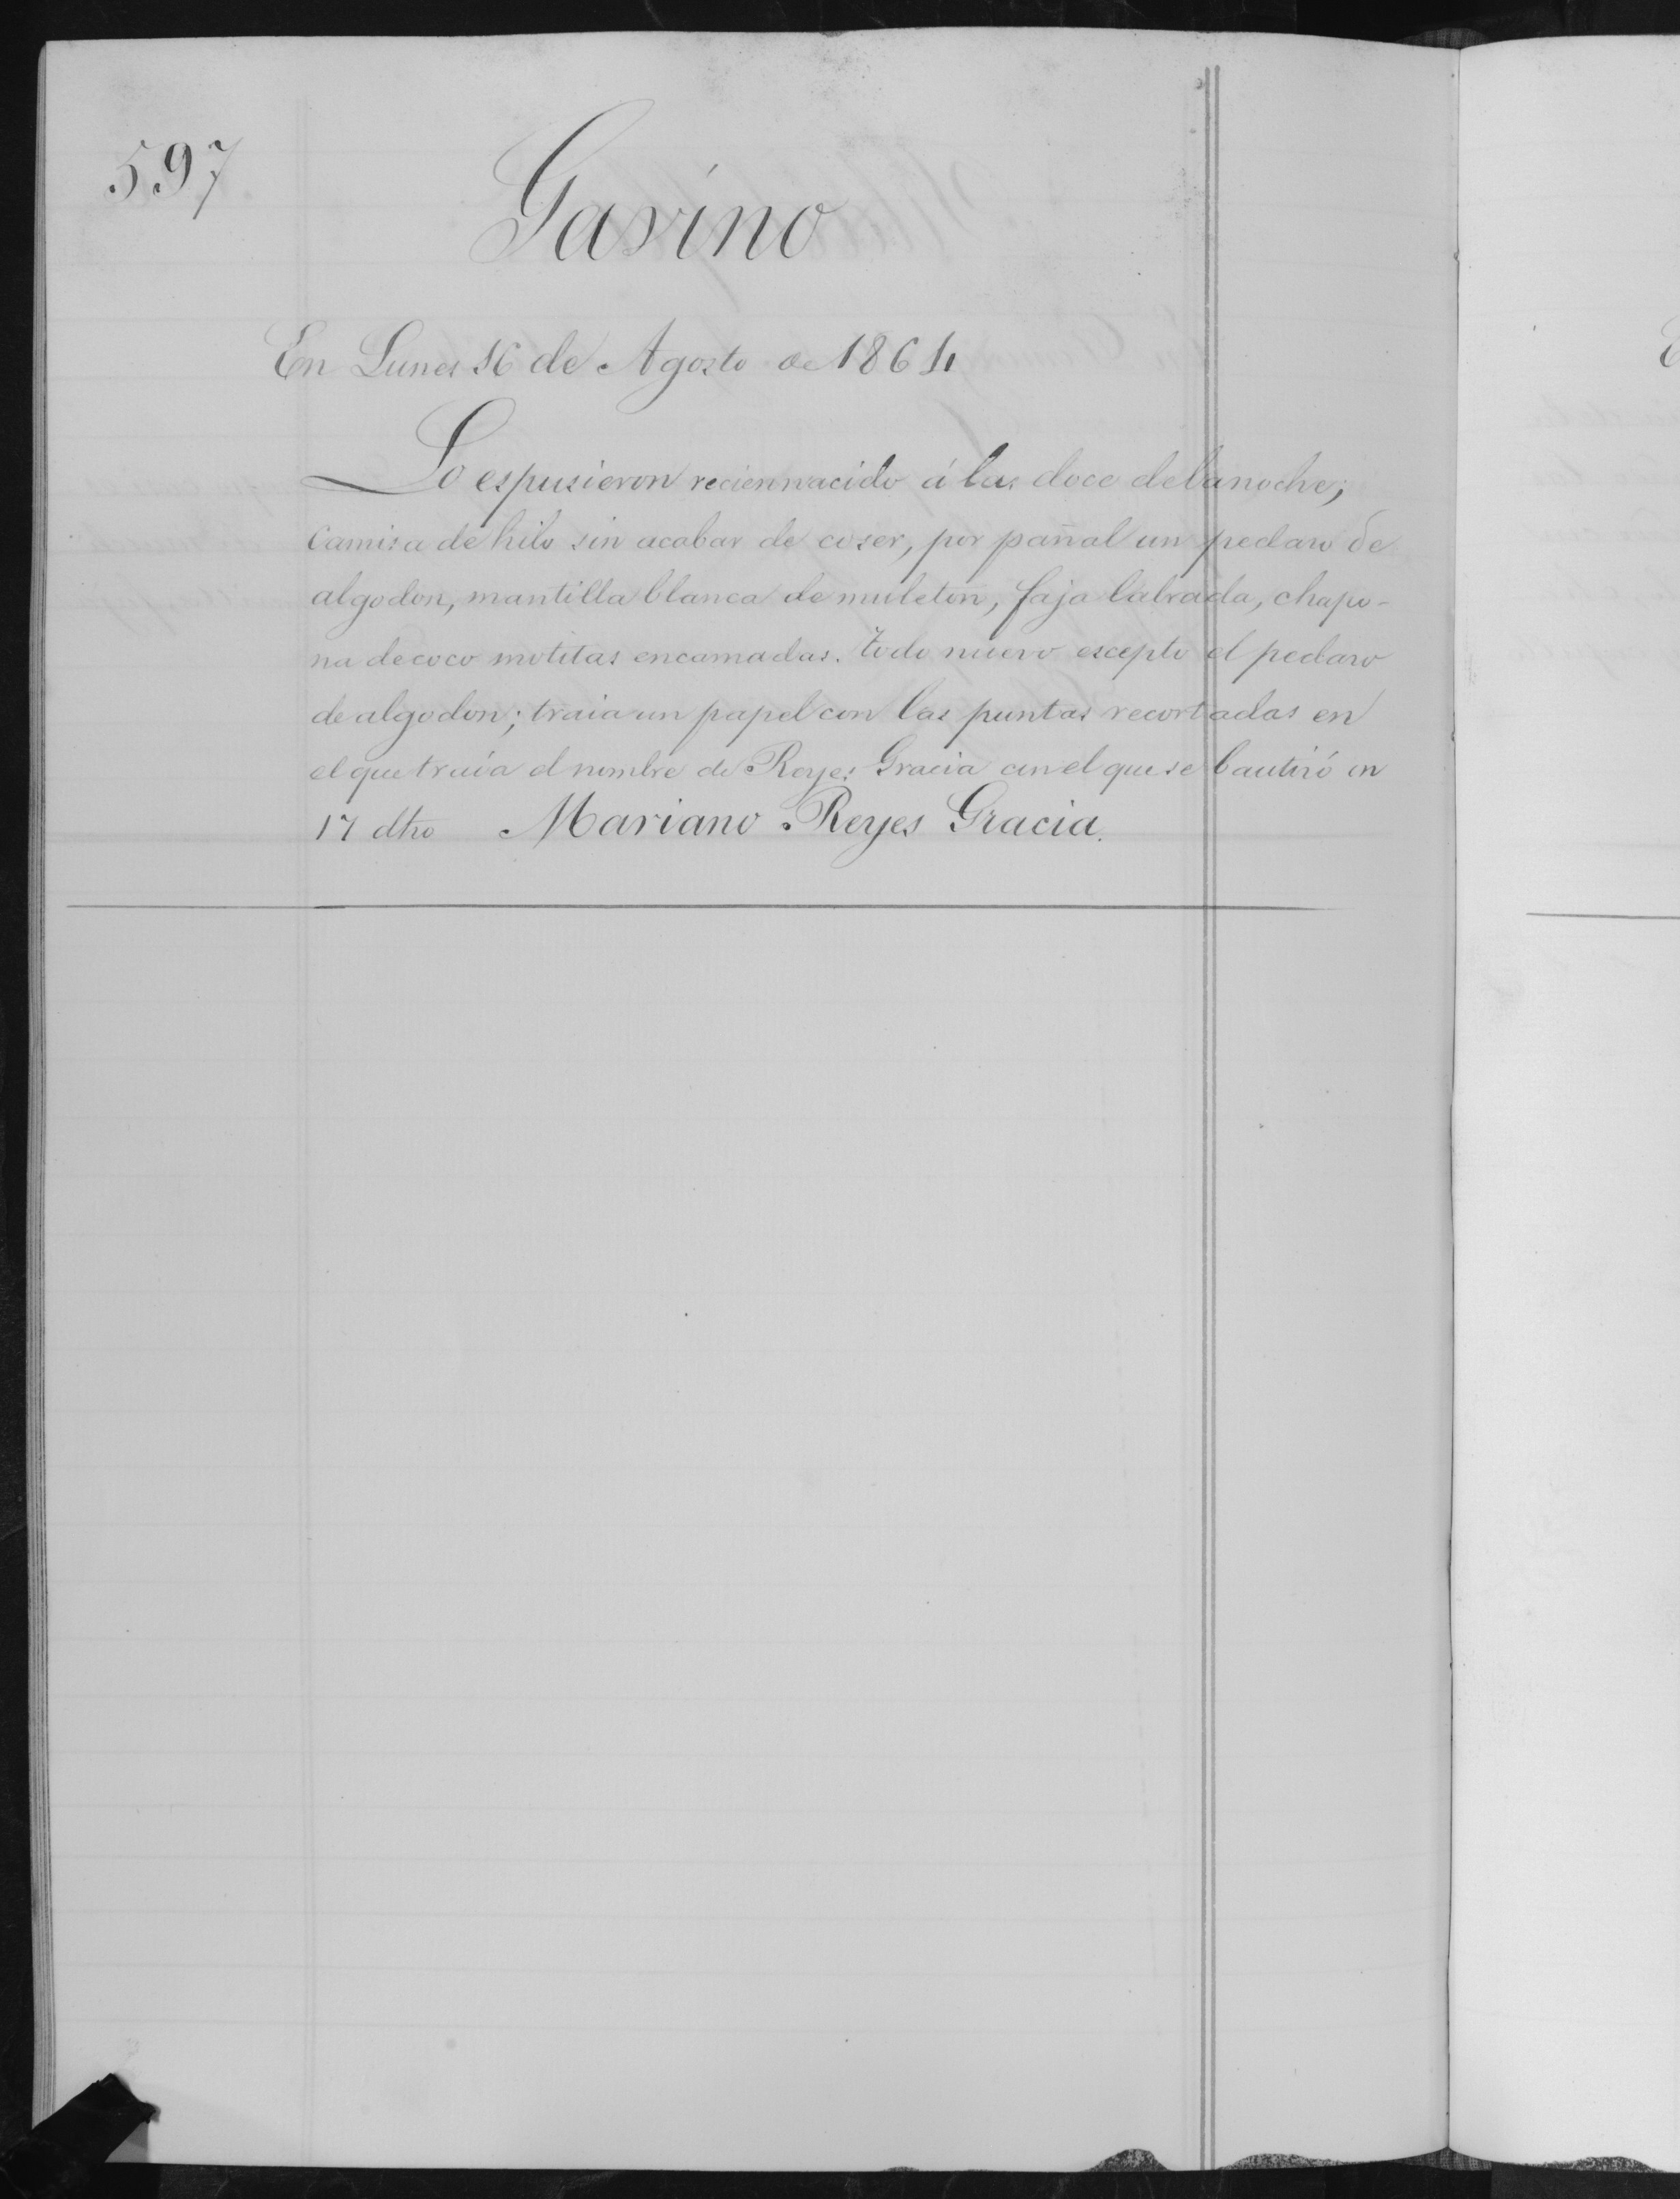 597
Gavino
En Lunes 16 de Agosto de 1864
Lo espusieron reciennacido á las doce de la noche;
Camisa de hilo sin acabar de coser, por pañal un pedazo de
algodon, mantilla blanca de muleton, faja labrada, chapo-
na de coco motitas encarnadas. todo nuevo escepto el pedazo
de algodon; traia un papel con las puntas recortadas en
el que traía el nombre de Reyes Gracia con el que se bautizó en
17 dho Mariano Reyes Gracia.